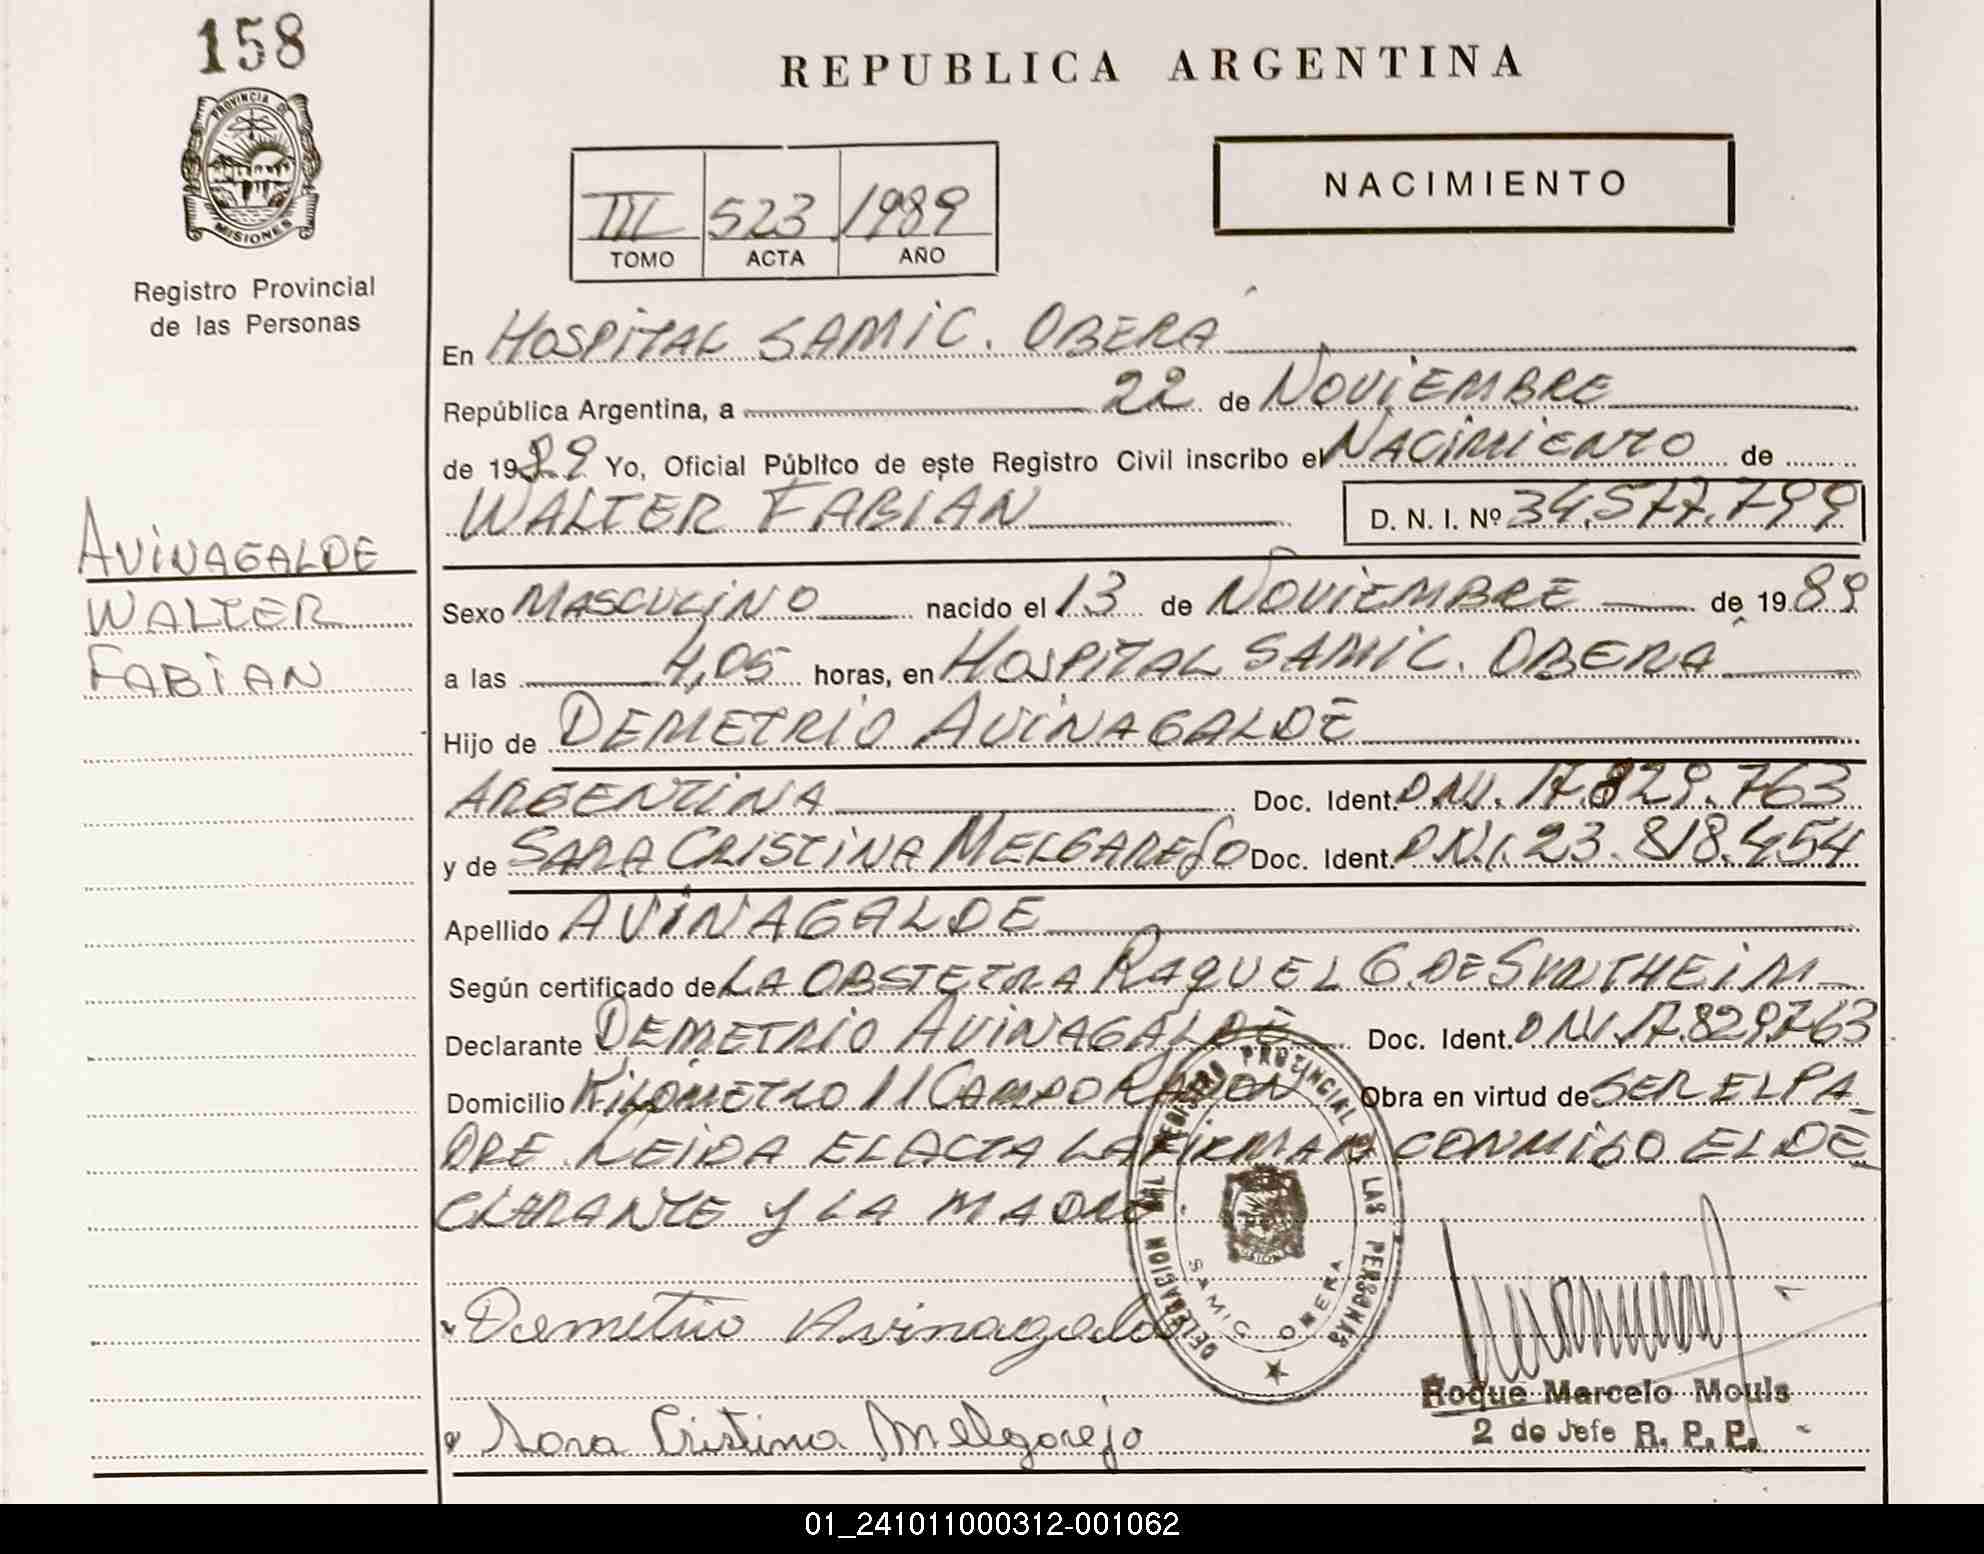 158
PROVINCIA DE
MISIONES
Registro Provincial
de las Personas
AVINAGALDE
WALTER
FABIAN
REPUBLICA ARGENTINA
III 523 1989
TOMO ACTA AÑO
NACIMIENTO
En HOSPITAL SAMIC. OBERÁ
República Argentina, a 22 de NOVIEMBRE
de 1989 Yo, Oficial Público de este Registro Civil inscribo el NACIMIENTO de
WALTER FABIAN D. N. I. Nº 34.577.799
Sexo MASCULINO nacido el 13 de NOVIEMBRE de 1989
a las 4,05 horas, en HOSPITAL SAMIC. OBERÁ
Hijo de DEMETRIO AVINAGALDE
ARGENTINA Doc. Ident. DNI. 17.829.763
y de SARA CRISTINA MELGAREJO Doc. Ident. DNI. 23.818.454
Apellido AVINAGALDE
Según certificado de LA OBSTETRA RAQUEL G. DE
Declarante DEMETRIO AVINAGALDE Doc. Ident. DNI. 17.829.763
Domicilio KILOMETRO 11 CAMPO RAMON Obra en virtud de SER EL PA
DRE. LEIDA EL ACTA LA FIRMAN CONMIGO EL DE
CLARANTE Y LA MADRE.
DELEGACION DEL REGISTRO PROVINCIAL DE LAS PERSONAS
SAMIC OBERA
Demetrio Avinagalde
Sara Cristina Melgarejo
Roque Marcelo Mouls
2 do Jefe R. P. P.
01_241011000312-001062